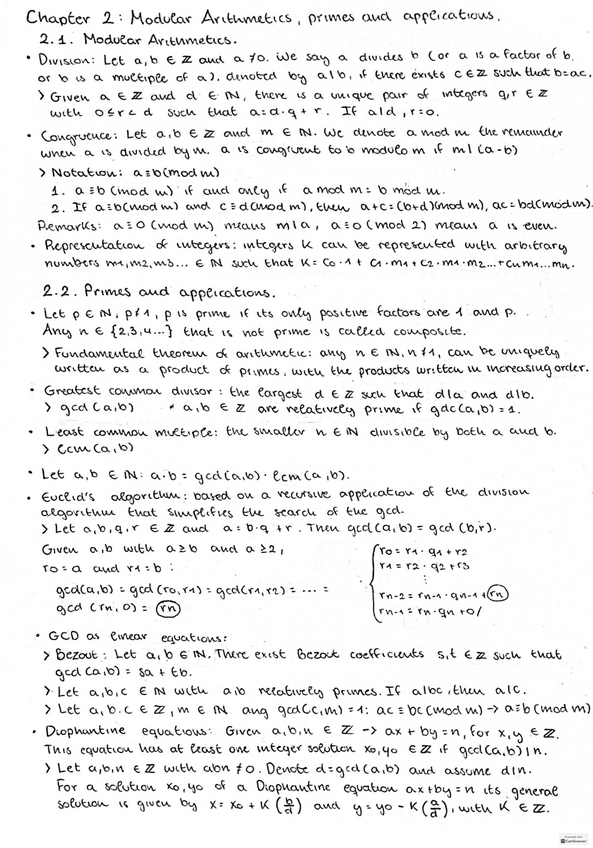 Chapter 2: Modular Arithmetics, primes and applications.
2.1. Modular Arithmetics.
• Division: Let a,b ∈ ℤ and a ≠ 0. We say a divides b (or a is a factor of b,
or b is a multiple of a), denoted by a|b, if there exists c ∈ ℤ such that b=ac.
> Given a ∈ ℤ and d ∈ ℕ, there is a unique pair of integers q,r ∈ ℤ
with 0 ≤ r < d such that a = d·q + r. If a|d, r=0.
• Congruence: Let a,b ∈ ℤ and m ∈ ℕ. We denote a mod m the remainder
when a is divided by m. a is congruent to b modulo m if m|(a-b)
> Notation: a≡b(mod m)
1. a≡b(mod m) if and only if a mod m = b mod m.
2. If a≡b(mod m) and c≡d(mod m), then a+c=(b+d)(mod m), ac=bd(mod m).
Remarks: a≡0 (mod m) means m|a, a≡0 (mod 2) means a is even.
• Representation of integers: integers K can be represented with arbitrary
numbers m1,m2,m3... ∈ ℕ such that K = C0·1 + C1·m1 + C2·m1·m2...+Cn m1...mn.
2.2. Primes and applications.
• Let p ∈ ℕ, p≠1, p is prime if its only positive factors are 1 and p.
Any n ∈ {2,3,4...} that is not prime is called composite.
> Fundamental theorem of arithmetic: any n ∈ ℕ, n≠1, can be uniquely
written as a product of primes, with the products written in increasing order.
• Greatest common divisor: the largest d ∈ ℤ such that d|a and d|b.
> gcd(a,b) * a,b ∈ ℤ are relatively prime if gdc(a,b)=1.
• Least common multiple: the smaller n ∈ ℕ divisible by both a and b.
> lcm(a,b)
• Let a,b ∈ ℕ: a·b = gcd(a,b)·lcm(a,b).
• Euclid's algorithm: based on a recursive application of the division
algorithm that simplifies the search of the gcd.
> Let a,b,q,r ∈ ℤ and a = b·q + r. Then gcd(a,b) = gcd(b,r).
Given a,b with a≥b and a≥2,
r0=a and r1=b:
gcd(a,b) = gcd(r0,r1) = gcd(r1,r2) = ... =
gcd(rn,0) = rn
r0 = r1·q1 + r2
r1 = r2·q2 + r3
⋮
rn-2 = rn-1·qn-1 + rn
rn-1 = rn·qn + 0/
• GCD as linear equations:
> Bezout: Let a,b ∈ ℕ. There exist Bezout coefficients s,t ∈ ℤ such that
gcd(a,b) = sa + tb.
> Let a,b,c ∈ ℕ with a,b relatively primes. If a|bc, then a|c.
> Let a,b,c ∈ ℤ, m ∈ ℕ ang gcd(c,m)=1: ac≡bc(mod m) -> a≡b(mod m)
• Diophantine equations: Given a,b,n ∈ ℤ -> ax + by = n, for x,y ∈ ℤ.
This equation has at least one integer solution x0,y0 ∈ ℤ if gcd(a,b)|n.
> Let a,b,n ∈ ℤ with abn ≠ 0. Denote d=gcd(a,b) and assume d|n.
For a solution x0,y0 of a Diophantine equation ax+by=n its general
solution is given by x = x0 + K(b/d) and y = y0 - K(a/d), with K ∈ ℤ.
CamScanner